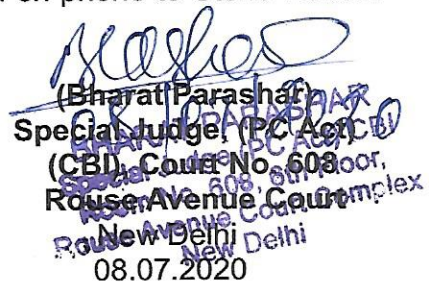 on phone to
(Bharat Parashar)
Special Judge, (PC Act)
(CBI), Court No. 608
Rouse Avenue Court
New Delhi
08.07.2020
BHARAT PARASHAR
Special Judge, PC Act, CBI
Room No. 608, 6th Floor,
Rouse Avenue Court Complex
New Delhi